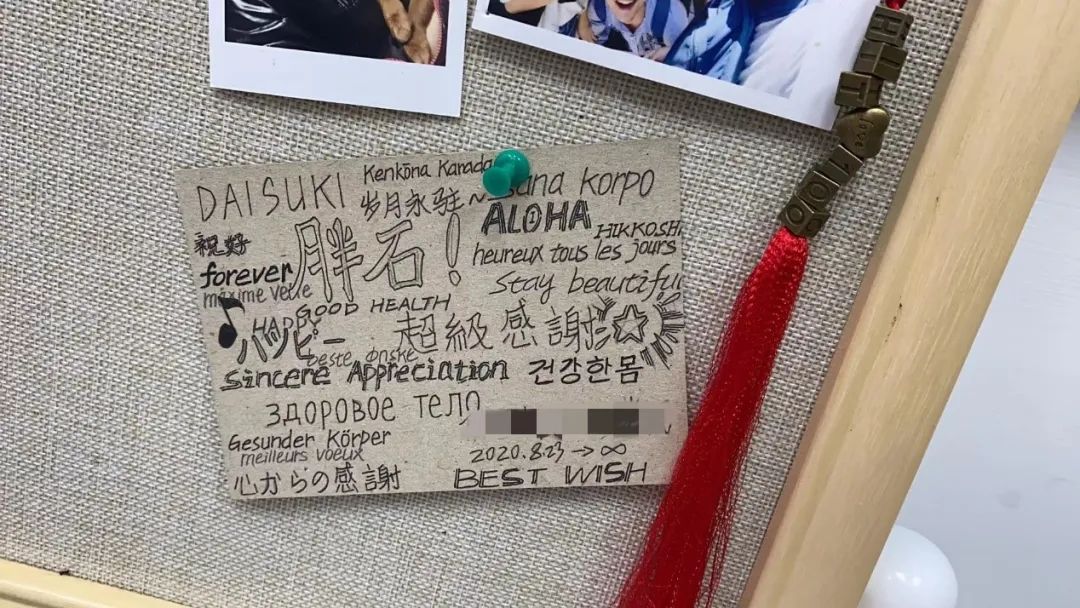 DAISUKI
Kenkōna Karada
sana korpo
岁月永驻
ALOHA
HIKKOSHI
祝好
胖石!
heureux tous les jours
forever
maxime velle
Stay beautiful
GOOD HEALTH
HAPPY
ハッピー
超級感謝
beste ønske
Sincere Appreciation
건강한몸
здоровое тело
Gesunder Körper
meilleurs voeux
2020.8.23→∞
心からの感謝
BEST WISH
love
100